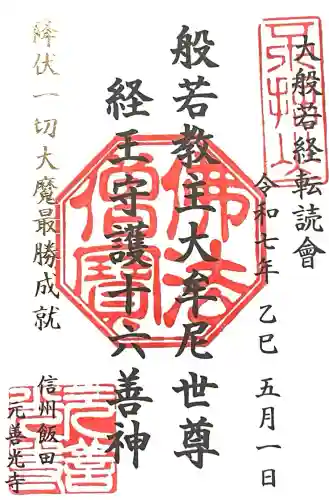 大般若経転読會
令和七年 乙巳 五月一日
般若教主大牟尼世尊
経王守護十六善神
降伏一切大魔最勝成就
信州飯田
元善光寺
佛法僧寳
元善